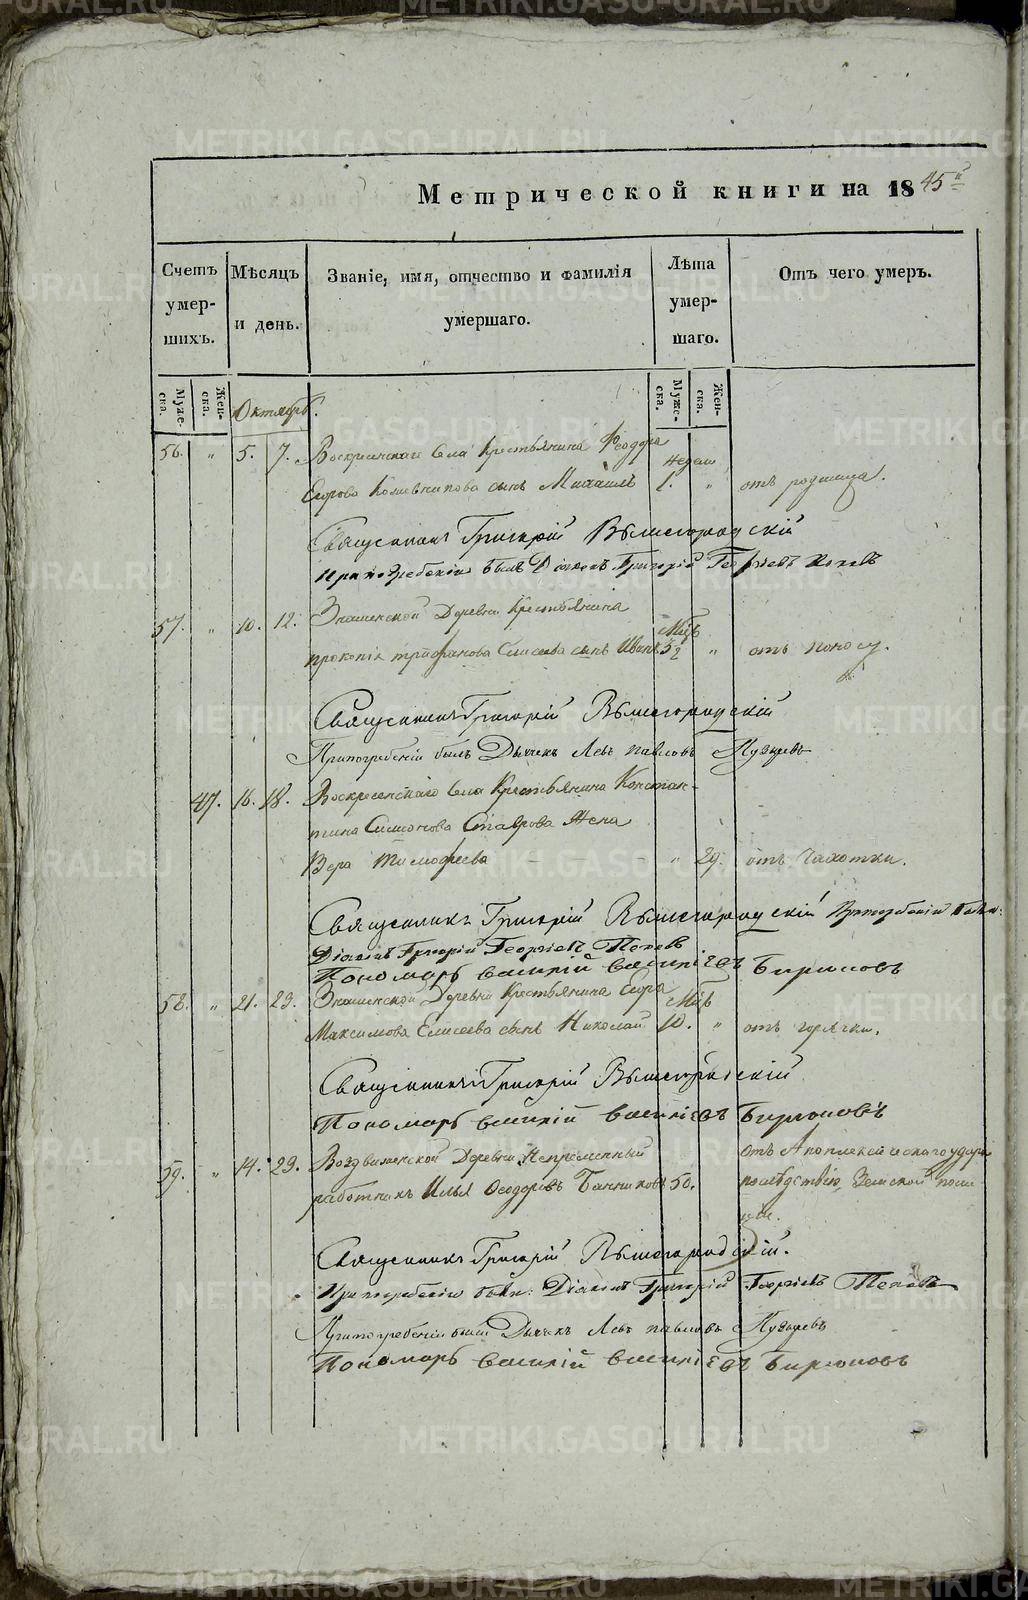 Метрической книги на 1845й
Счетъ умер-шихъ.
Мѣсяцъ и день.
Званіе, имя, отчество и фамилія умершаго.
Лѣта умер-шаго.
Отъ чего умеръ.
Муже-ска.
Жен-ска.
Октябрь.
Муже-ска.
Жен-ска.
56. " 5. 7. Воскресенскаго Села Крестьянина Феодора
Егорова сынъ Михаилъ недели 1. " отъ родимца.
Священникъ Григорій Вышегородскій
При погребеніи былъ Діаконъ Григорій Георгіевъ Поповъ
57. " 10. 12. Знаменской Деревни Крестьянина
Прокопія Трифонова Елисеева сынъ Иванъ Мѣс. " отъ поносу.
Священникъ Григорій Вышегородскій
При погребеніи былъ Дьячекъ Левъ Павловъ
47. 16. 18. Воскресенскаго Села Крестьянина Констан-
тина Симонова Ставрова Жена
Вера Тимофеева " 29. отъ чахотки.
Священникъ Григорій Вышегородскій При погребеніи были:
Діаконъ Григорій Георгіевъ Поповъ
Пономарь Василій Васильевъ Бирюковъ
58. " 21. 23. Знаменской Деревни Крестьянина Егора
Максимова Елисеева сынъ Николай Мѣс. 10. " отъ горячки.
Священникъ Григорій Вышегородскій
Пономарь Василій Васильевъ Бирюковъ
59. " 14. 23. Воздвиженской Деревни Непременный
работникъ Илья Феодоровъ Банниковъ 50. отъ Апоплексическаго удара
по следствію Земской поли
ціи.
Священникъ Григорій Вышегородскій.
При погребеніи были: Діаконъ Григорій Георгіевъ Поповъ
При погребеніи были Дьячекъ Левъ Павловъ
Пономарь Василій Васильевъ Бирюковъ
METRIKI.GASO-URAL.RU